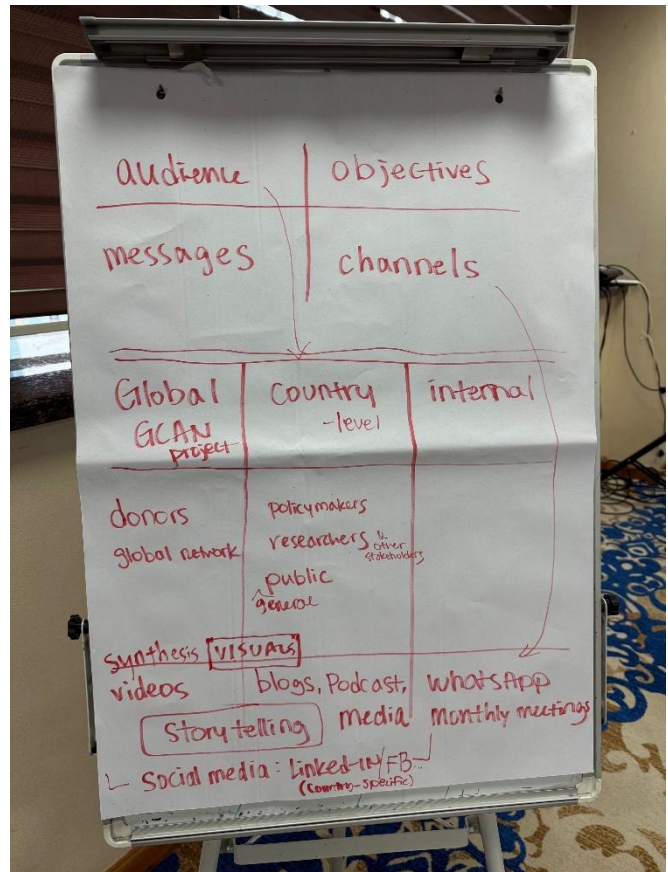 audience
objectives
messages
channels
Global
GCAN
project
Country
-level
internal
donors
global network
policymakers
researchers & other stakeholders
public
^general
synthesis
VISUALS
videos
blogs, Podcast,
media
WhatsApp
monthly meetings
Storytelling
Social media: Linked-IN/FB
(Country-Specific)